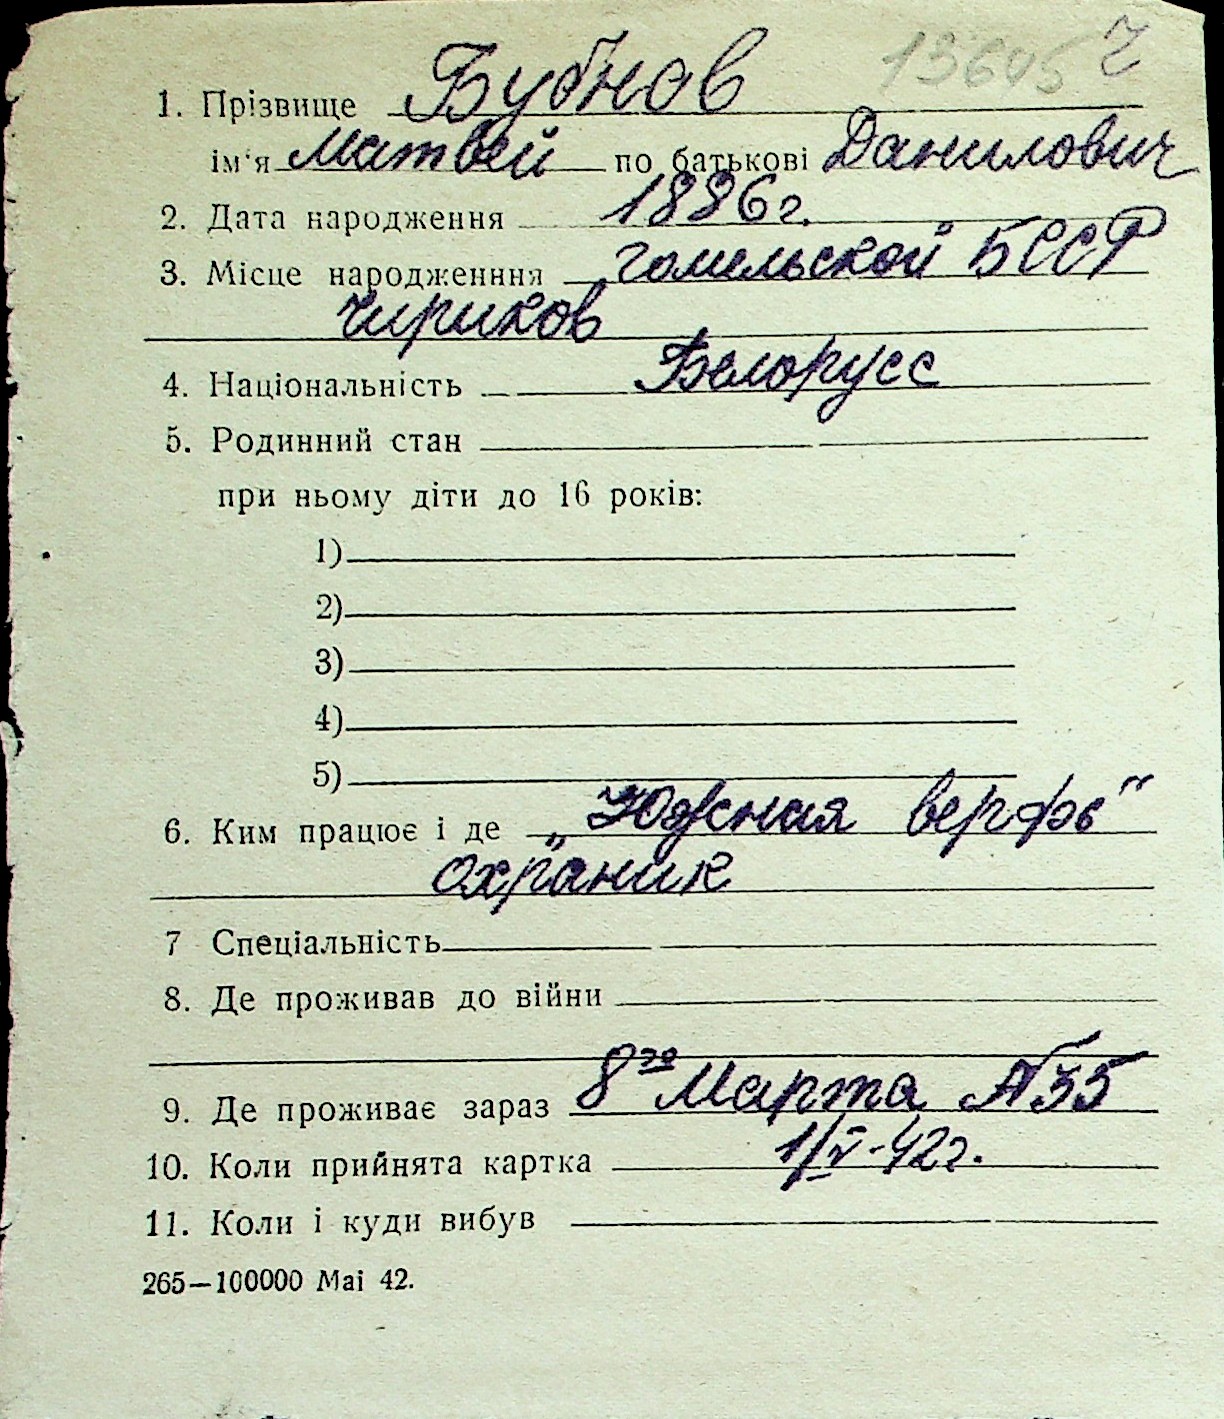 13645 г
1. Прізвище Бубнов
ім'я Матвей по батькові Данилович
2. Дата народження 1886 г.
3. Місце народженння гомельской БССР
Чириков
4. Національність Белорусс
5. Родинний стан
при ньому діти до 16 років:
1)
2)
3)
4)
5)
6. Ким працює і де „Южная верфь"
охраник
7 Спеціальність
8. Де проживав до війни
9. Де проживає зараз 8го Марта №35
10. Коли прийнята картка 1/V-42г.
11. Коли і куди вибув
265—100000 Mai 42.